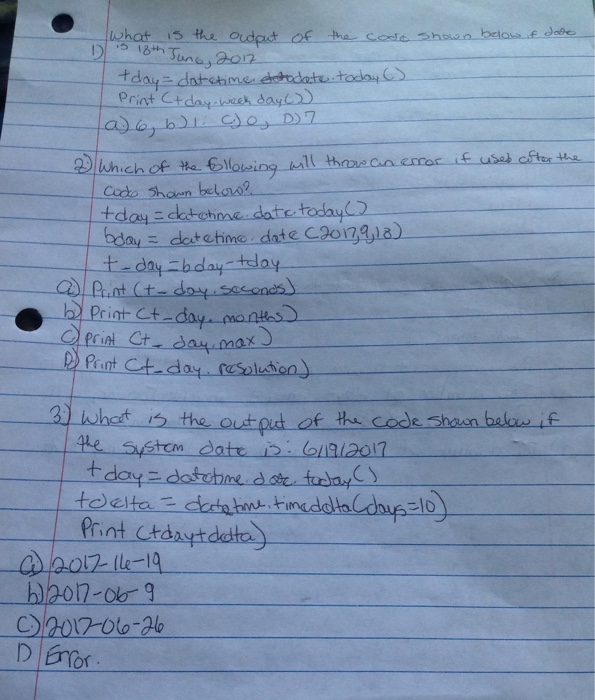 What is the output of the code shown below if date
1) is 18th June, 2017
tday = datetime.date.today()
Print (tday.week day())
a) 6, b) 1. c) 0, D) 7
2) Which of the following will throw an error if used after the
code shown below?
tday = datetime.date.today()
bday = datetime.date (2017,9,18)
t-day = bday-tday
a) Print (t-day.seconds)
b) Print (t-day.months)
c) Print (t-day.max)
D) Print (t-day.resolution)
3) What is the output of the code shown below if
the system date is: 6/19/2017
tday = datetime.date.today()
tdelta = datetime.timedelta(days=10)
Print (tday+delta)
a) 2017-16-19
b) 2017-06-9
c) 2017-06-26
D Error.